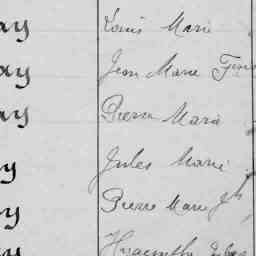 ay Louis Marie
ay Jean Marie
ay Pierre Marie
y Jules Marie
y Pierre Marie Jh
Hyacinthe Jules